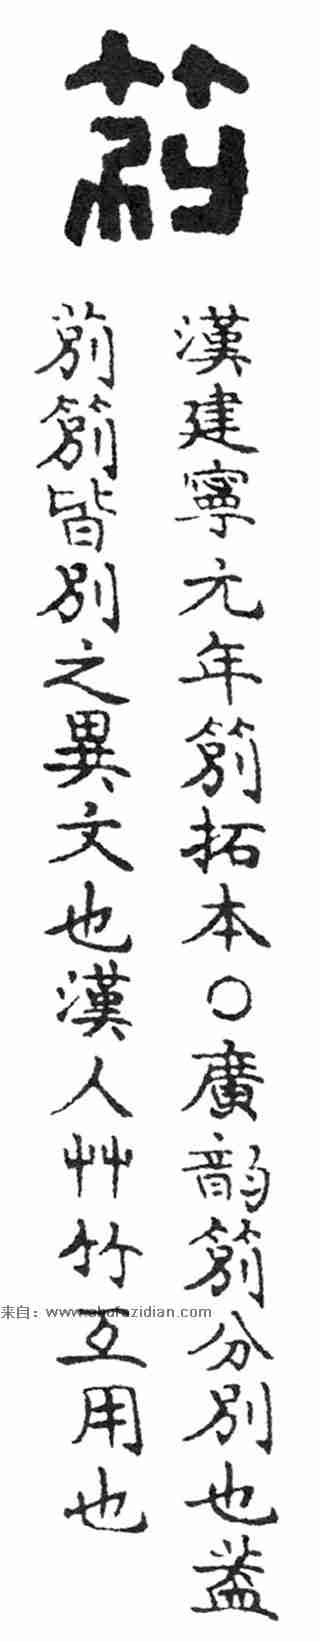 莂
漢建寧元年莂拓本○廣韵莂分別也蓋
莂莂皆別之異文也漢人艸竹互用也
来自：www.shufazidian.com